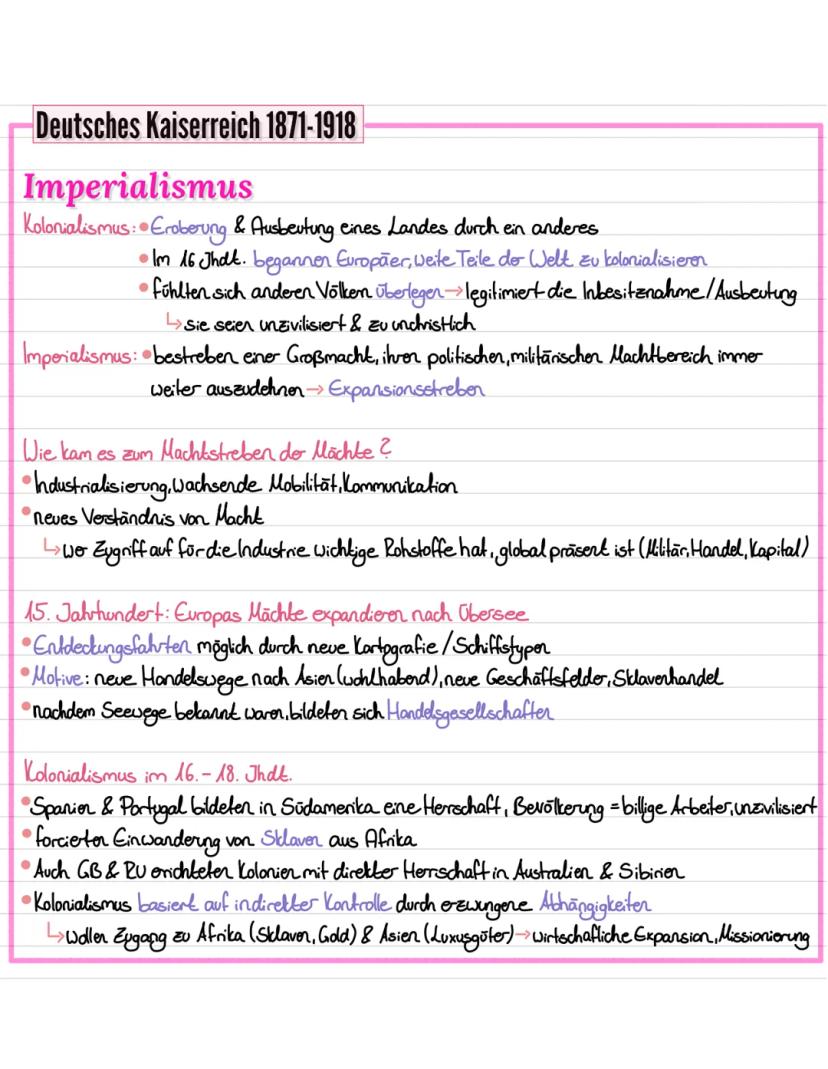 Deutsches Kaiserreich 1871-1918
Imperialismus
Kolonialismus: • Eroberung & Ausbeutung eines Landes durch ein anderes
• Im 16 Jhdt. begannen Europäer, weite Teile der Welt zu kolonialisieren
• fühlten sich anderen Völkern überlegen → legitimiert die Inbesitznahme/Ausbeutung
↳ sie seien unzivilisiert & zu unchristlich
Imperialismus: • bestreben einer Großmacht, ihren politischen, militärischen Machtbereich immer
weiter auszudehnen → Expansionsstreben
Wie kam es zum Machtstreben der Mächte?
• Industrialisierung, Wachsende Mobilität, Kommunikation
• neues Verständnis von Macht
↳ wer Zugriff auf für die Industrie wichtige Rohstoffe hat, global präsent ist (Militär, Handel, Kapital)
15. Jahrhundert: Europas Mächte expandieren nach Übersee
• Entdeckungsfahrten möglich durch neue Kartografie/Schiffstypen
• Motive: neue Handelswege nach Asien (wohlhabend), neue Geschäftsfelder, Sklavenhandel
• nachdem Seewege bekannt waren, bildeten sich Handelsgesellschaften
Kolonialismus im 16.- 18. Jhdt.
• Spanien & Portugal bildeten in Südamerika eine Herrschaft, Bevölkerung = billige Arbeiter, unzivilisiert
• forcierten Einwanderung von Sklaven aus Afrika
• Auch GB & RU errichteten Kolonien mit direkter Herrschaft in Australien & Sibirien
• Kolonialismus basiert auf indirekter Kontrolle durch erzwungene Abhängigkeiten
↳ wollen Zugang zu Afrika (Sklaven, Gold) & Asien (Luxusgüter) → wirtschaftliche Expansion, Missionierung